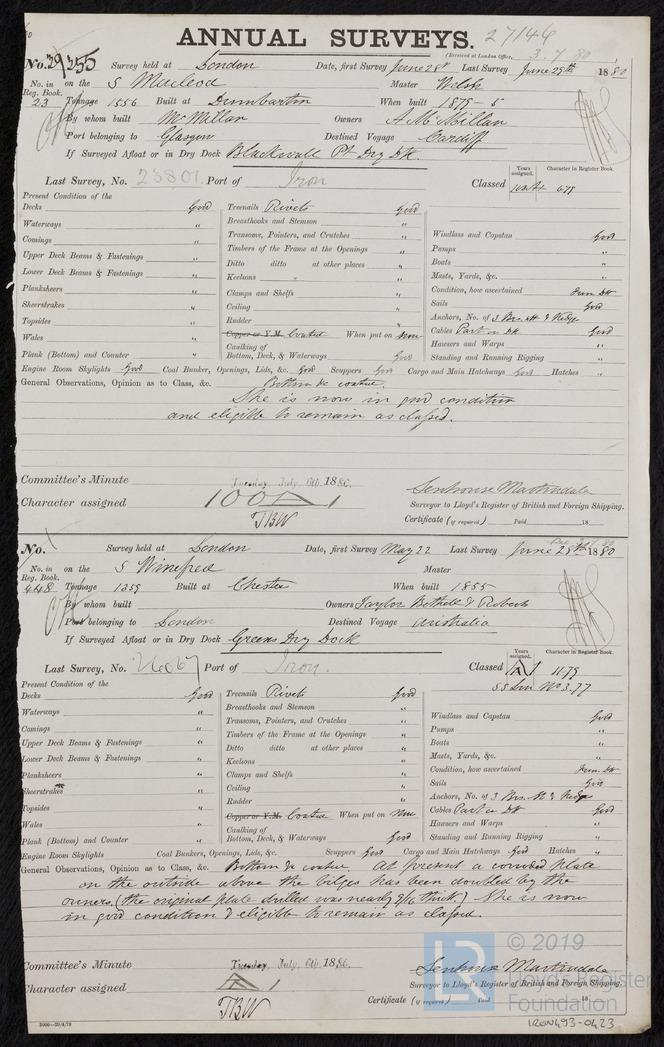 ANNUAL SURVEYS. 27146
(Received at London Office, 3.7.80
No. 29255 Survey held at London Date, first Survey June 28th Last Survey June 29th 1880
No. in Reg. Book. 23 on the S Macleod Master Welsh
Tonnage 1556 Built at Dumbarton When built 1879-5
By whom built McMillan Owners A McMillan
Port belonging to Glasgow Destined Voyage Cardiff
If Surveyed Afloat or in Dry Dock Blackwall Pt Dry Dk.
Last Survey, No. 23801 Port of Iron Classed 100A1 6.79
Years assigned. Character in Register Book.
Present Condition of the
Decks Good Treenails Rivets Good
Waterways " Breasthooks and Stemson "
Comings " Transoms, Pointers, and Crutches " Windlass and Capstan Good
Upper Deck Beams & Fastenings " Timbers of the Frame at the Openings " Pumps "
Lower Deck Beams & Fastenings " Ditto ditto at other places " Boats "
Planksheers " Keelsons " Masts, Yards, &c. "
Sheerstrakes " Clamps and Shelfs " Condition, how ascertained from Dk
Topsides " Ceiling " Sails Good
Wales " Rudder " Anchors, No. of 3 Brs. St & Kedge
Plank (Bottom) and Counter " Copper or Y.M. Coated When put on now Cables Part in Dk Good
Caulking of Bottom, Deck, & Waterways Good Hawsers and Warps "
Standing and Running Rigging "
Engine Room Skylights Good Coal Bunker, Openings, Lids, &c. Good Scuppers Good Cargo and Main Hatchways Good Hatches "
General Observations, Opinion as to Class, &c. Bottom &c coated.
She is now in good condition
and eligible to remain as classed.
Committee's Minute Tuesday, July, 6th, 1880.
Character assigned 100A1
TBW
Senhouse Martindale
Surveyor to Lloyd's Register of British and Foreign Shipping.
Certificate (if required) Paid 18
No. Survey held at London Date, first Survey May 22 Last Survey June 29th 1880
No. in Reg. Book. 448 on the S Winefred Master
Tonnage 1359 Built at Chester When built 1855
By whom built Owners Taylor Bethell & Roberts
Port belonging to London Destined Voyage Australia
If Surveyed Afloat or in Dry Dock Greens Dry Dock
Last Survey, No. Port of Iron. Classed A1 11.79
Years assigned. Character in Register Book.
SS Lon No 3.77
Present Condition of the
Decks Good Treenails Rivets Good
Waterways " Breasthooks and Stemson "
Comings " Transoms, Pointers, and Crutches " Windlass and Capstan Good
Upper Deck Beams & Fastenings " Timbers of the Frame at the Openings " Pumps "
Lower Deck Beams & Fastenings " Ditto ditto at other places " Boats "
Planksheers " Keelsons " Masts, Yards, &c. "
Sheerstrakes " Clamps and Shelfs " Condition, how ascertained from Dk
Topsides " Ceiling " Sails Good
Wales " Rudder " Anchors, No. of 3 Brs. St & Kedge
Plank (Bottom) and Counter " Copper or Y.M. Coated When put on now Cables Part in Dk Good
Caulking of Bottom, Deck, & Waterways Good Hawsers and Warps "
Standing and Running Rigging "
Engine Room Skylights Coal Bunkers, Openings, Lids, &c. Scuppers Good Cargo and Main Hatchways Good Hatches "
General Observations, Opinion as to Class, &c. Bottom &c coated. At present a corroded plate
on the outside above the bilges has been doubled by the
owners. (the original plate drilled was nearly 9/16 thick.) She is now
in good condition & eligible to remain as classed.
Committee's Minute Tuesday, July, 6th, 1880.
Character assigned A 1
TBW
Senhouse Martindale
Surveyor to Lloyd's Register of British and Foreign Shipping.
Certificate (if required) Paid 18
LR © 2019 Lloyd's Register Foundation
IRON493-0423